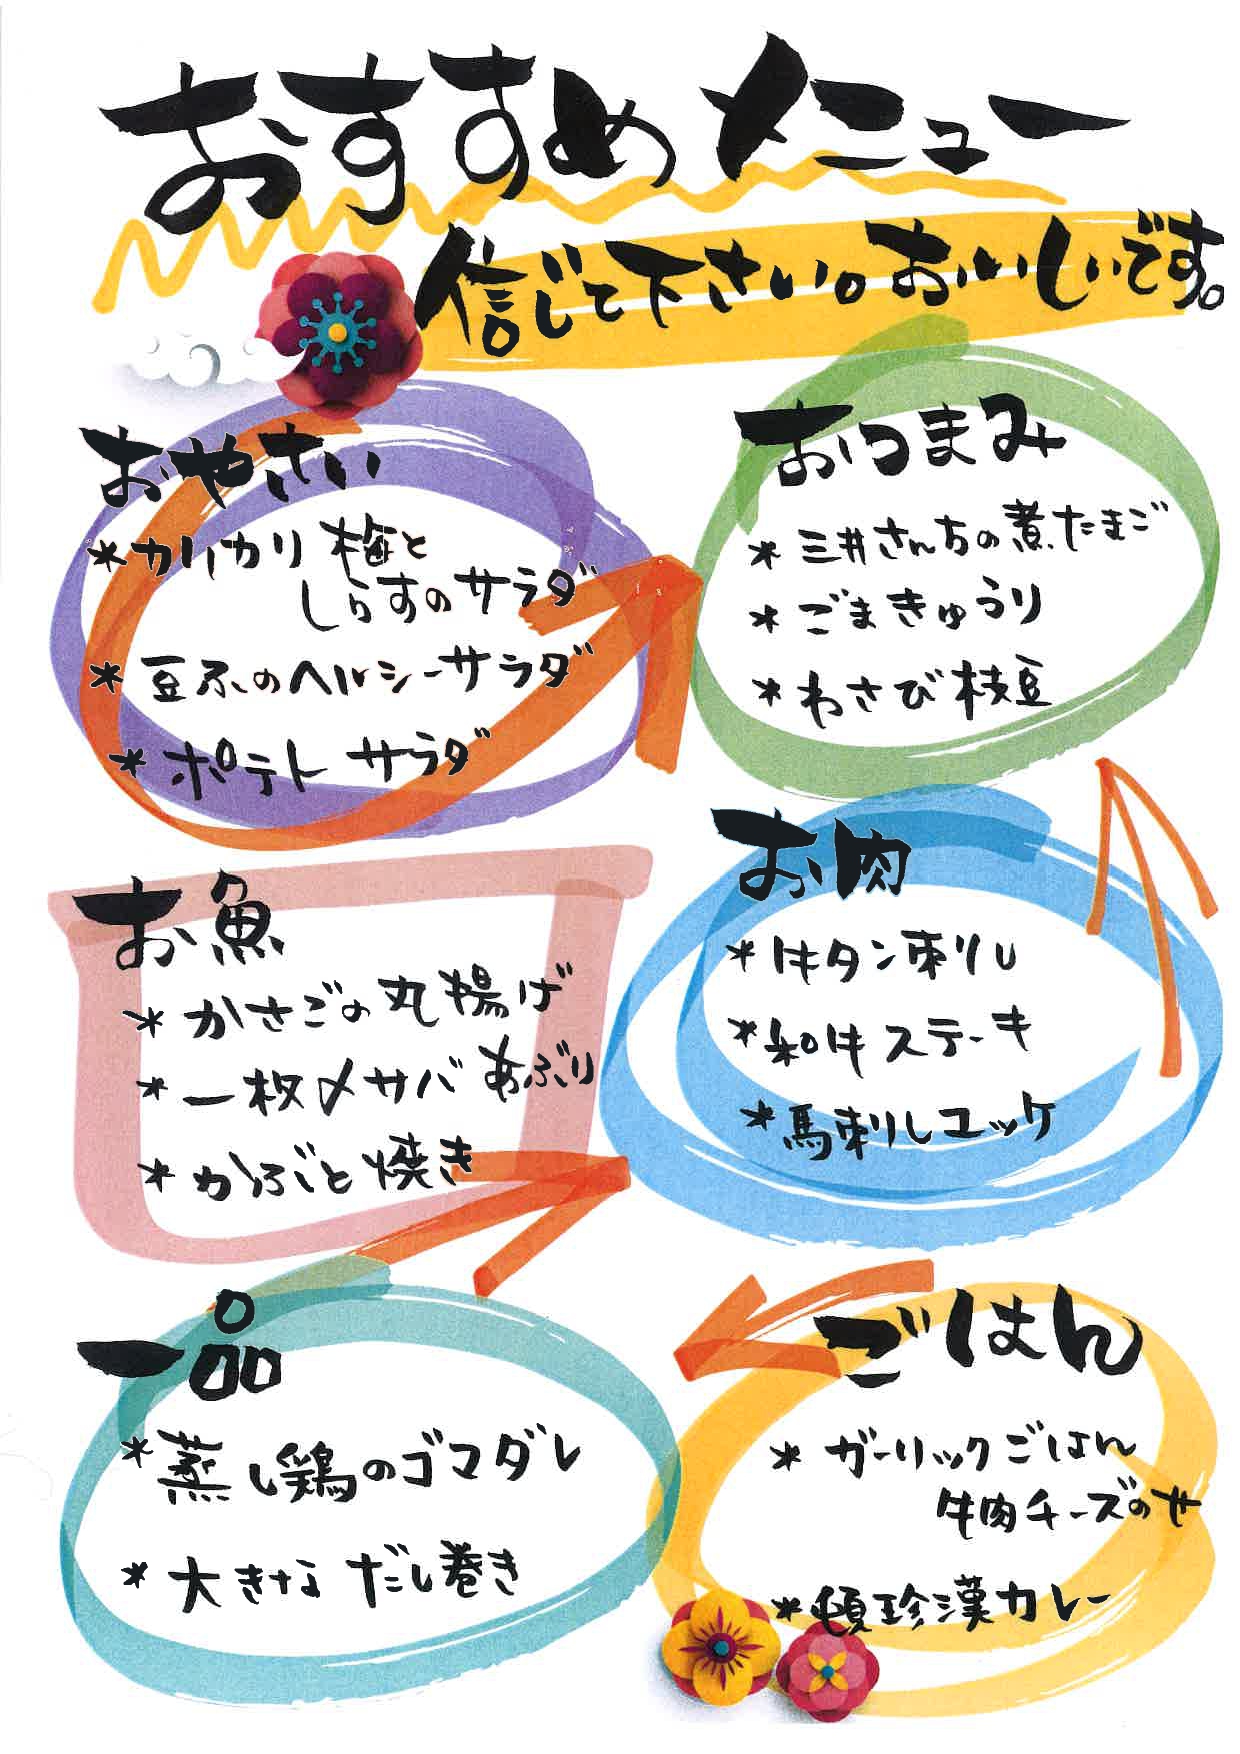 おすすめメニュー
信じて下さい。おいしいです。
おやさい
*カリカリ梅と
しらすのサラダ
*豆ふのヘルシーサラダ
*ポテトサラダ
おつまみ
*三井さんちの煮たまご
*ごまきゅうり
*わさび枝豆
お魚
*かさごの丸揚げ
*一枚〆サバあぶり
*かぶと焼き
お肉
*牛タン刺し
*和牛ステーキ
*馬刺しユッケ
一品
*蒸し鶏のゴマダレ
*大きなだし巻き
ごはん
*ガーリックごはん
牛肉チーズのせ
*頓珍漢カレー